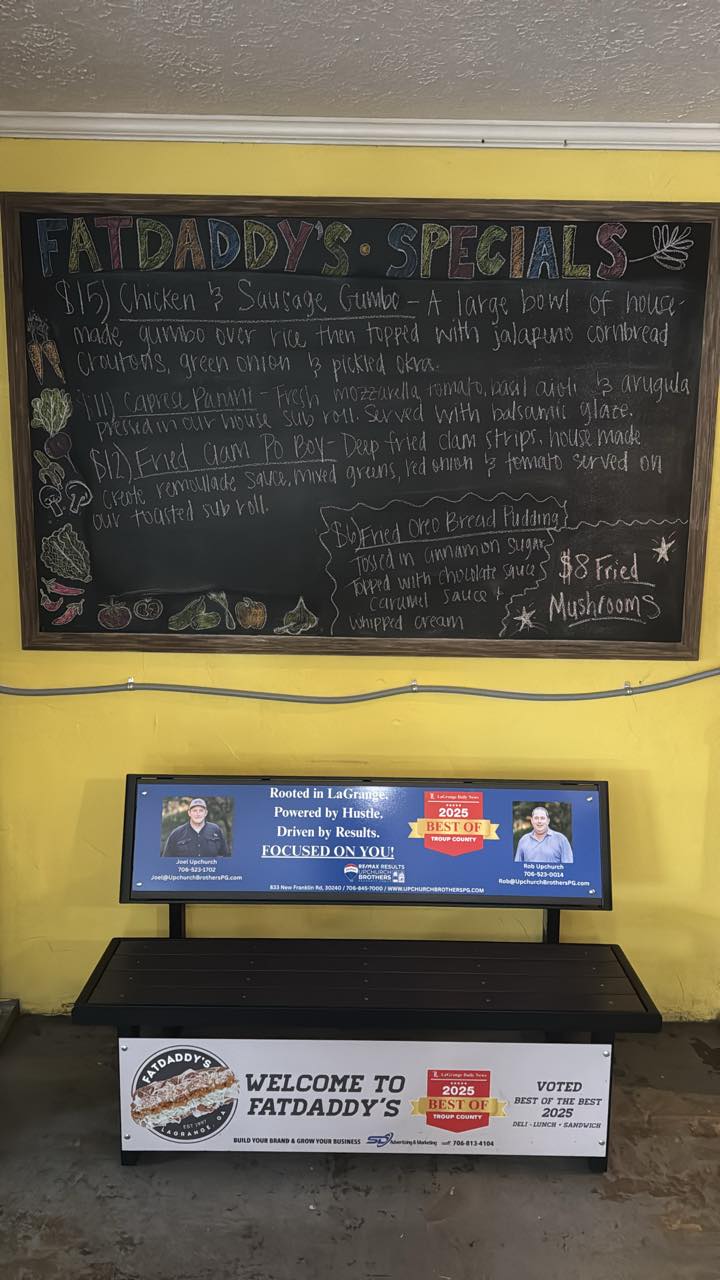 FATDADDY'S • SPECIALS
$15) Chicken & Sausage Gumbo - A large bowl of house-
made gumbo over rice then topped with jalapuno cornbread
croutons, green onion & pickled okra.
$11) Caprese Panini - Fresh mozzarella, tomato, basil aioli & arugula
pressed in our house sub roll. Served with balsamic glaze.
$12) Fried Clam Po Boy - Deep fried clam strips, house made
creole remoulade sauce, mixed greens, red onion & tomato served on
our toasted sub roll.
$6) Fried Oreo Bread Pudding
Tossed in cinnamon sugar
topped with chocolate sauce
caramel sauce +
whipped cream
$8 Fried
Mushrooms
Rooted in LaGrange.
Powered by Hustle.
Driven by Results.
FOCUSED ON YOU!
Joel Upchurch
706-523-1702
Joel@UpchurchBrothersPG.com
RE/MAX RESULTS
UPCHURCH
BROTHERS
LaGrange Daily News
2025
BEST OF
TROUP COUNTY
Rob Upchurch
706-523-0014
Rob@UpchurchBrothersPG.com
833 New Franklin Rd, 30240 / 706-845-7000 / WWW.UPCHURCHBROTHERSPG.COM
FATDADDY'S
EST 1997
LAGRANGE, GA
WELCOME TO
FATDADDY'S
LaGrange Daily News
2025
BEST OF
TROUP COUNTY
VOTED
BEST OF THE BEST
2025
DELI - LUNCH - SANDWICH
BUILD YOUR BRAND & GROW YOUR BUSINESS
Advertising & Marketing
706-813-4104